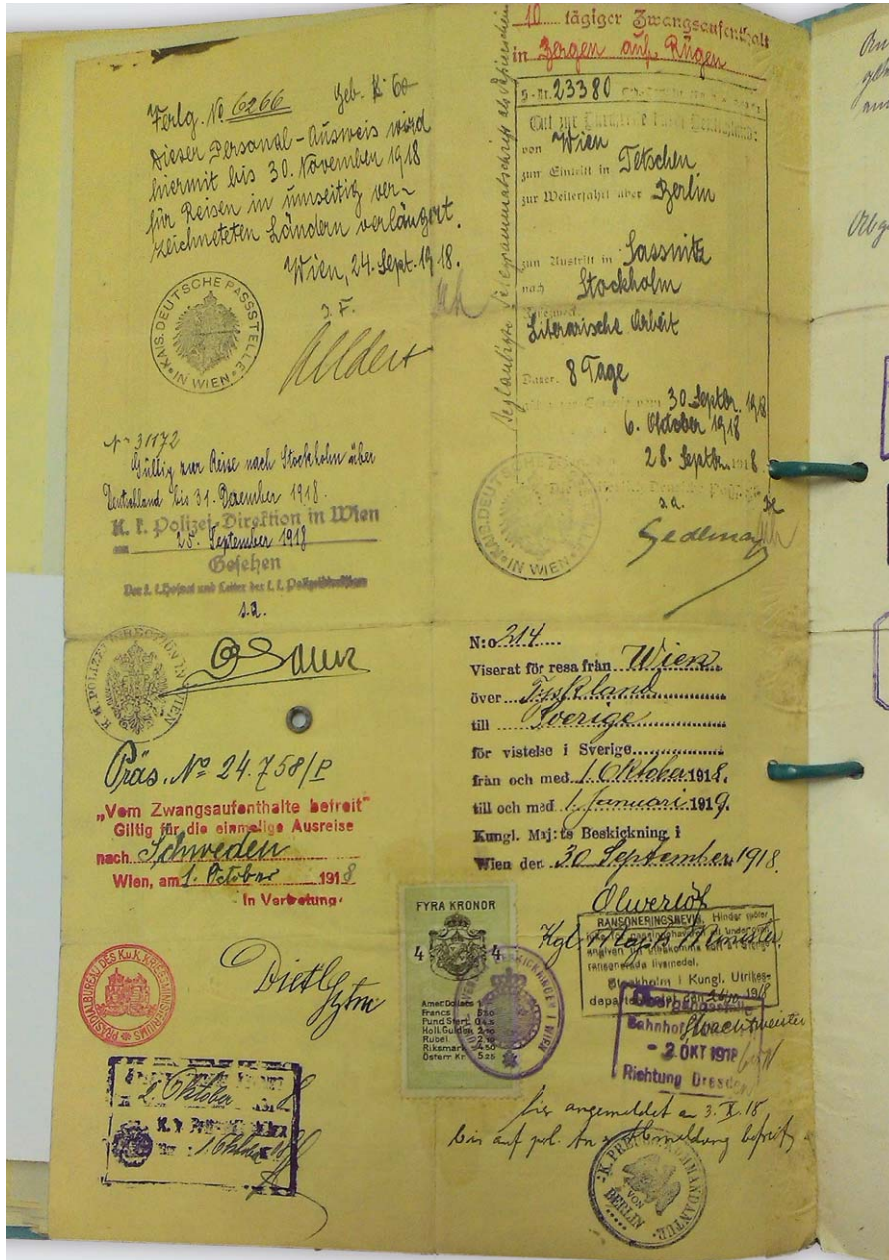 Verlg. No 6266 Geb. K 60
Dieser Personal-Ausweis wird
hiermit bis 30. November 1918
für Reisen in umseitig ver-
zeichneten Ländern verlängert.
Wien, 24. Sept. 1918.
KAIS. DEUTSCHE PASSSTELLE
IN WIEN
No 31172
Gültig zur Reise nach Stockholm über
Deutschland bis 31. Dezember 1918.
K. k. Polizei-Direktion in Wien
am 25. September 1918
Gesehen
Der k. k. Hofrat und Leiter der k. k. Polizeidirektion
K. K. POLIZEI DIRECTION IN WIEN
Präs. No 24.758/P
„Vom Zwangsaufenthalte befreit"
Giltig für die einmalige Ausreise
nach Schweden
Wien, am 1. October 1918
In Vertretung:
PRÄSIDIALBUREAU DES K.u.K. KRIEGSMINISTERIUMS
Dietl
2. Oktober
1. Oktober
10 tägiger Zwangsaufenthalt
in Bergen auf Rügen
S.-Nr. 23380
von Wien
zum Eintritt in Tetschen
zur Weiterfahrt über Berlin
zum Austritt in Sassnitz
nach Stockholm
Literarische Arbeit
Dauer. 8 Tage
30. Septbr. 1918
6. Oktober 1918
28. Septbr. 1918
KAIS. DEUTSCHE
IN WIEN
N:o 214
Viserat för resa från Wien
över Tyskland
till Sverige
för vistelse i Sverige
från och med 1 Oktober 1918.
till och med 1 Januari 1919.
Kungl. Maj:ts Beskickning i
Wien den 30 September 1918.
FYRA KRONOR
4 4
Amer. Dollars 1
Francs 5.20
Pund Sterl.
Holl. Gulden
Rubel
Riksmark 4.50
Österr. Kr 5.25
BESKICKNING I WIEN
RANSONERINGSBEVIS. Hinder möter
ransonerade livsmedel.
Stockholm i Kungl. Utrikes-
departementet den 1918
Übergangsstelle
Bahnhof
- 2. OKT 1918
Richtung Dresden
hier angemeldet am 3. X. 18
bis auf pol. An- u. Abmeldung befreit
K. PREUSS. KOMMANDANTUR
VON BERLIN